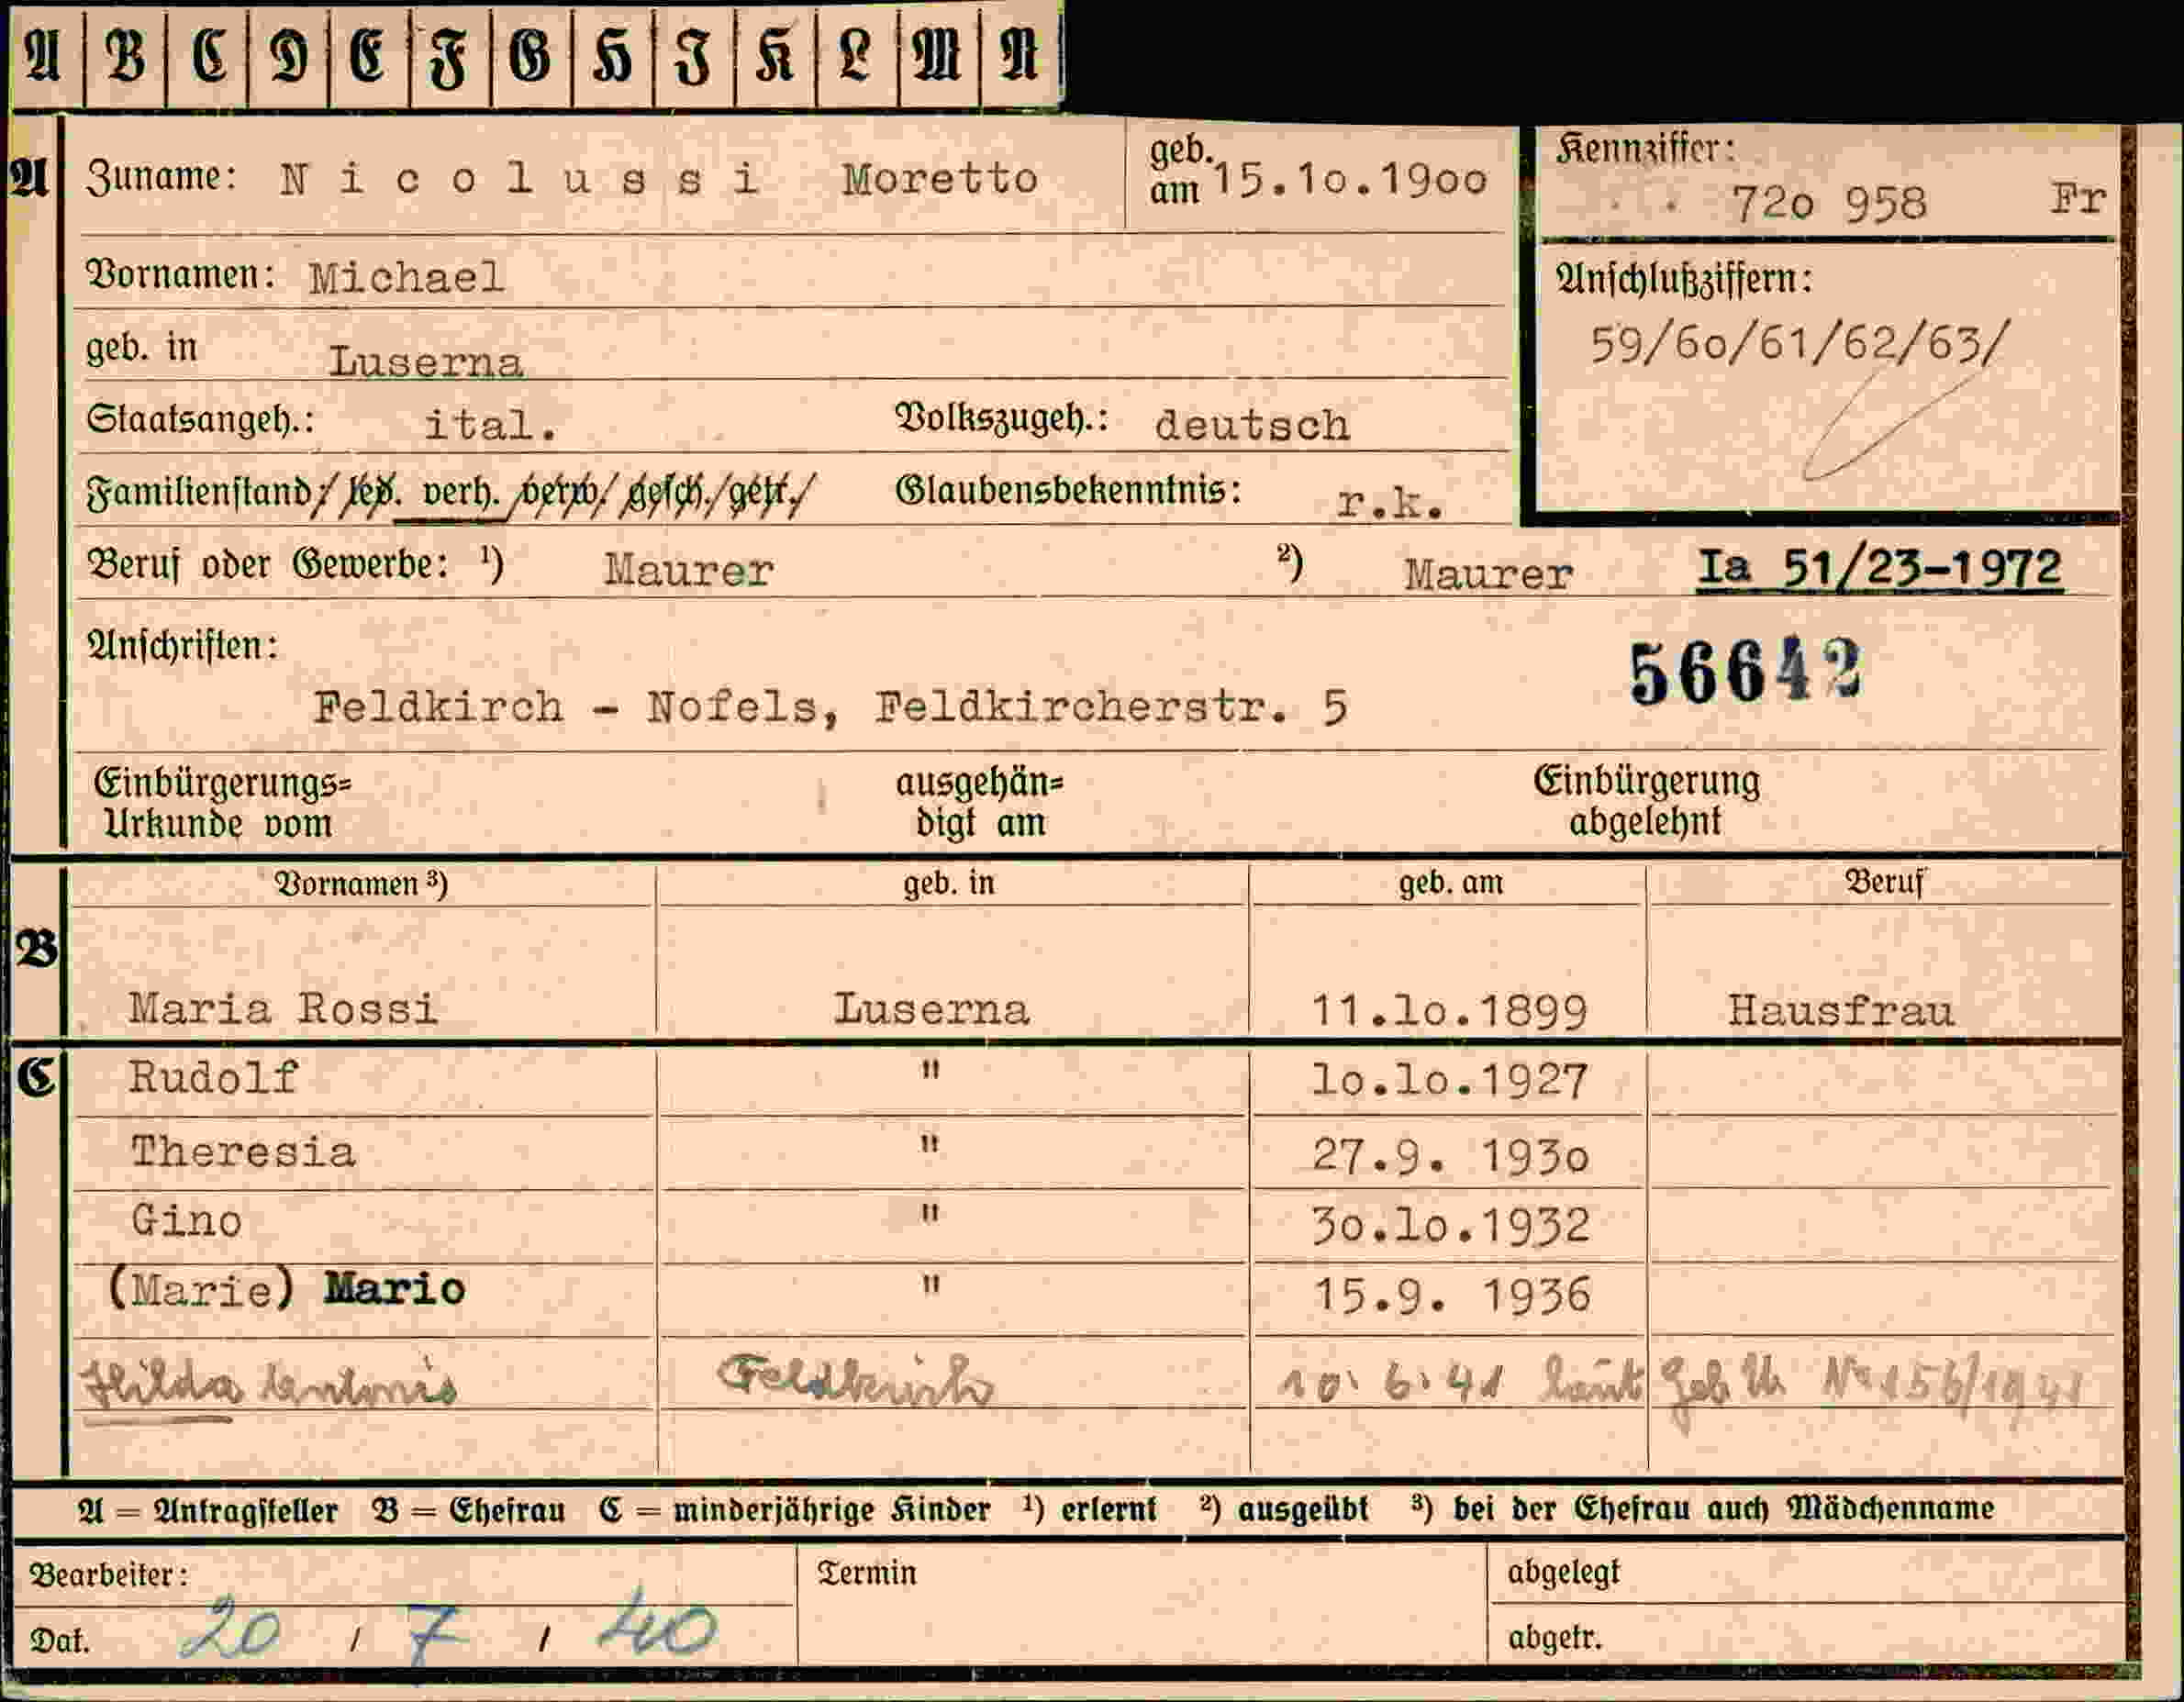 A B C D E F G H J K L M N
A Zuname: N i c o l u s s i Moretto geb. am 15.1o.19oo
Kennziffer:
72o 958 Fr
Vornamen: Michael
Anschlußziffern:
59/6o/61/62/63/
geb. in Luserna
Staatsangeh.: ital. Volkszugeh.: deutsch
Familienstand: led. verh. verw. gesch. getr. Glaubensbekenntnis: r.k.
Beruf oder Gewerbe: ¹) Maurer ²) Maurer Ia 51/23-1972
Anschriften: 56642
Feldkirch - Nofels, Feldkircherstr. 5
Einbürgerungs= ausgehän= Einbürgerung
Urkunde vom digt am abgelehnt
Vornamen ³) geb. in geb. am Beruf
B
Maria Rossi Luserna 11.lo.1899 Hausfrau
C Rudolf " lo.lo.1927
Theresia " 27.9. 193o
Gino " 3o.lo.1932
(Marie) Mario " 15.9. 1936
Hilda Antonia Feldkirch 10. 6. 41 laut Geb Uk No 156/1941
A = Antragsteller B = Ehefrau C = minderjährige Kinder ¹) erlernt ²) ausgeübt ³) bei der Ehefrau auch Mädchenname
Bearbeiter: Termin abgelegt
Dat. 20 / 7 / 40 abgetr.